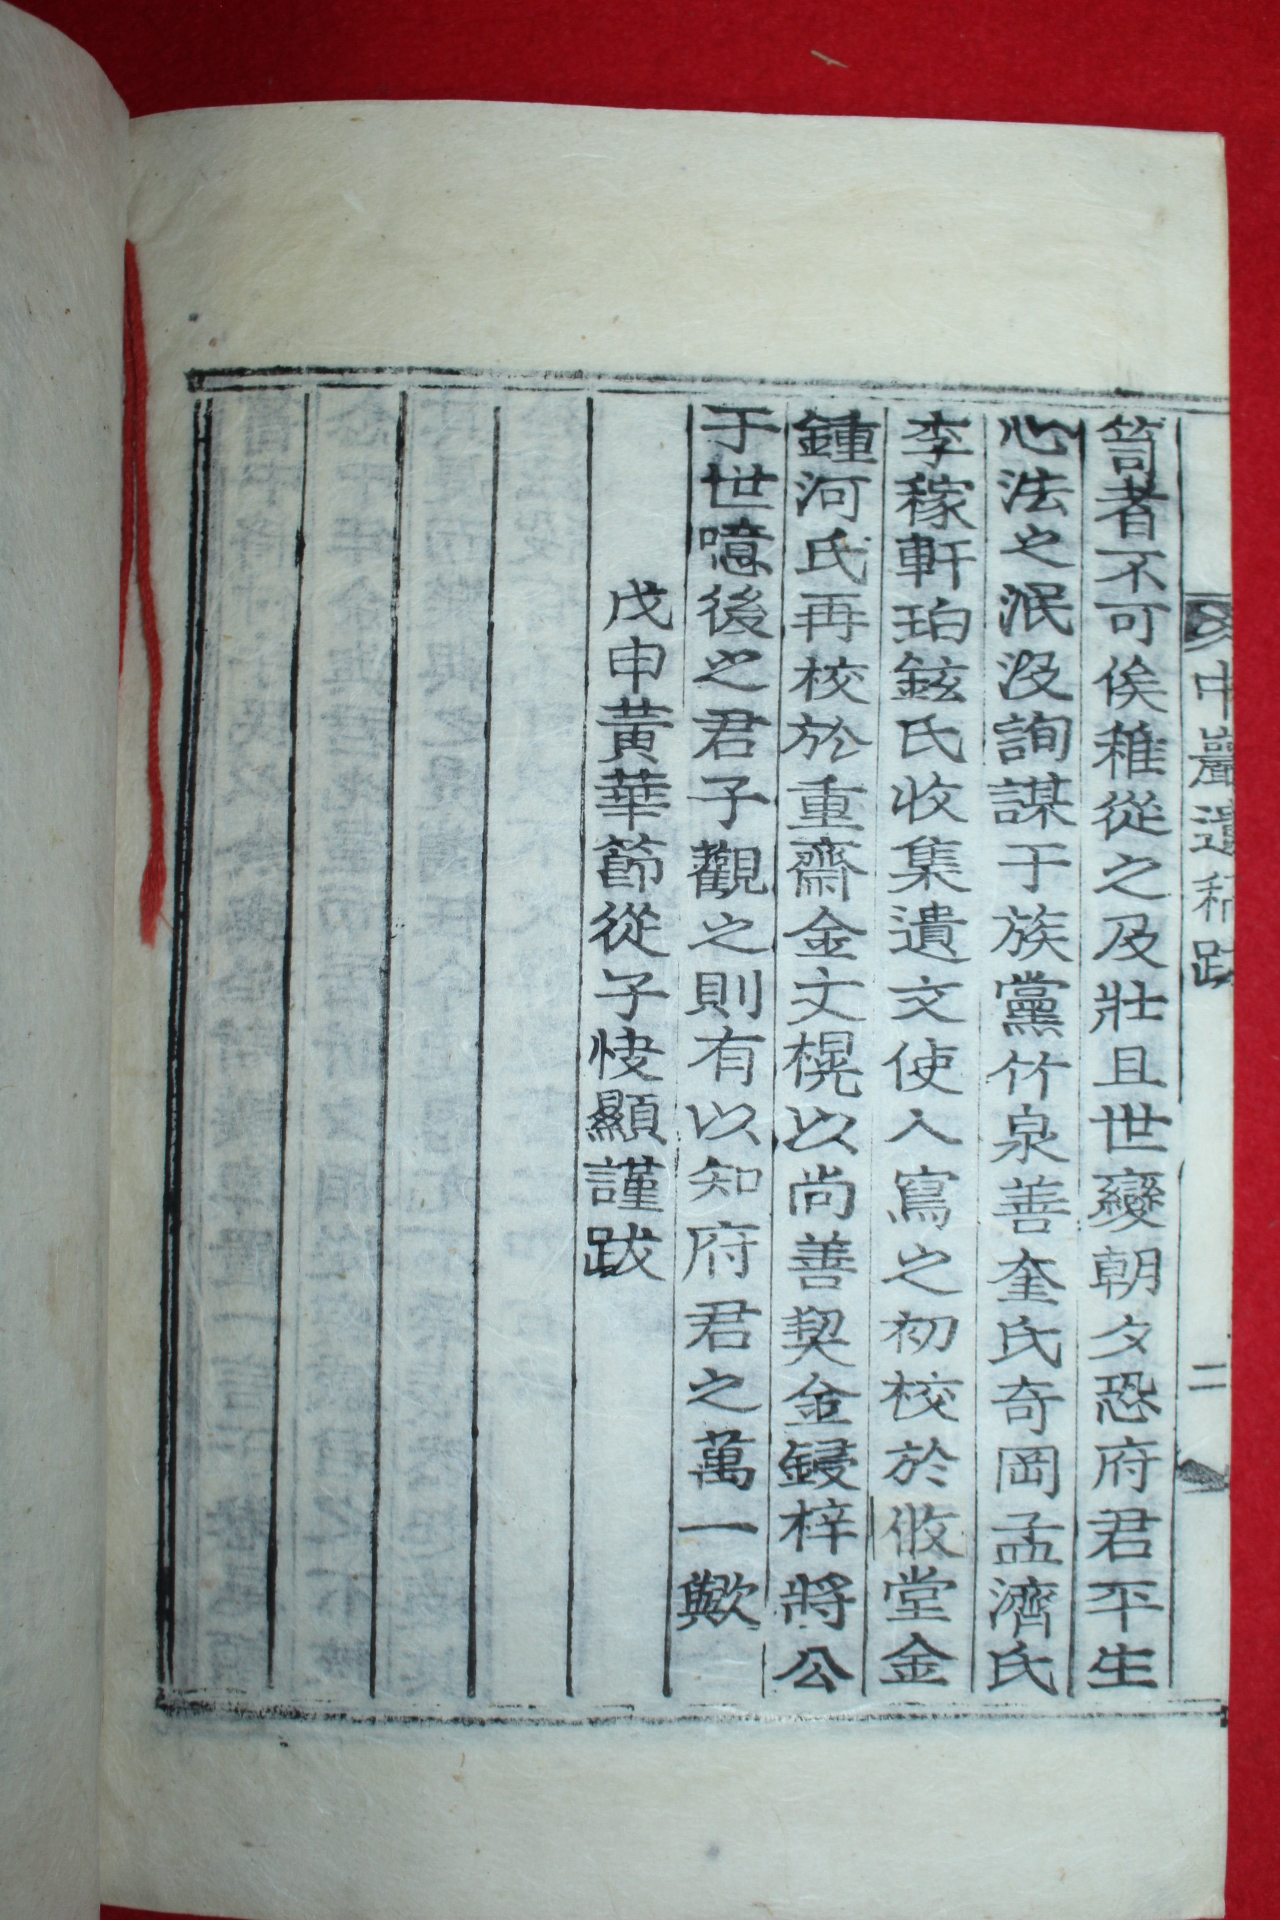 中巖遺稿跋 二
笴者不可俟稚從之及壯且世變朝夕恐府君平生
心法之泯沒詢謀于族黨竹泉善奎氏奇岡孟濟氏
李稼軒珀鉉氏收集遺文使人寫之初校於攸堂金
鍾河氏再校於重齋金文榥以尚善契金鋟梓將公
于世噫後之君子觀之則有以知府君之萬一歟
戊申黃華節從子快顯謹跋